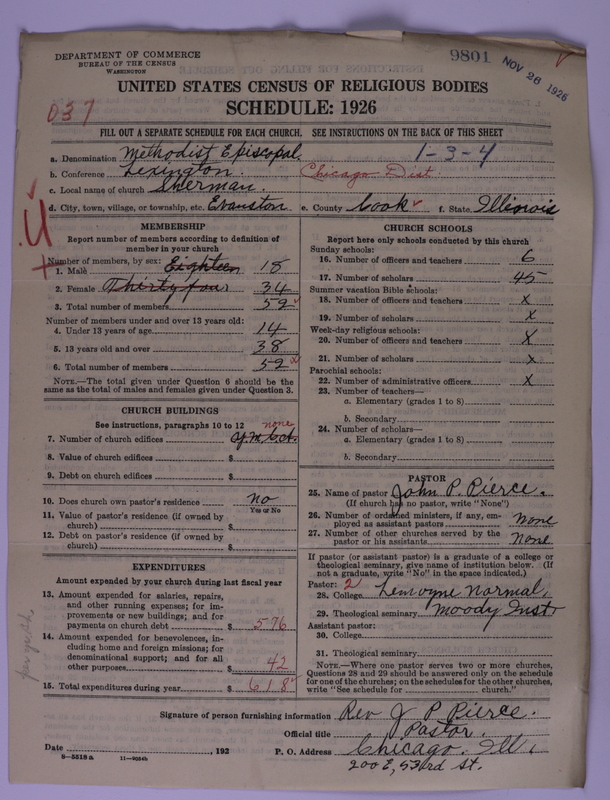 DEPARTMENT OF COMMERCE
BUREAU OF THE CENSUS
WASHINGTON
9801 NOV 26 1926
UNITED STATES CENSUS OF RELIGIOUS BODIES
SCHEDULE: 1926
037
FILL OUT A SEPARATE SCHEDULE FOR EACH CHURCH. SEE INSTRUCTIONS ON THE BACK OF THIS SHEET
a. Denomination Methodist Episcopal. 1-3-4
b. Conference Lexington. Chicago Dist.
c. Local name of church Sherman.
d. City, town, village, or township, etc. Evanston e. County Cook f. State Illinois
MEMBERSHIP
Report number of members according to definition of
member in your church
Number of members, by sex:
1. Male Eighteen 18
2. Female Thirty four 34
3. Total number of members 52
Number of members under and over 13 years old:
4. Under 13 years of age 14
5. 13 years old and over 38
6. Total number of members 52
NOTE.—The total given under Question 6 should be
same as the total of males and females given under Question 3.
CHURCH BUILDINGS
See instructions, paragraphs 10 to 12 none
7. Number of church edifices Y.M.C.A.
8. Value of church edifices $
9. Debt on church edifices $
10. Does church own pastor's residence? No
Yes or No
11. Value of pastor's residence (if owned by
church) $
12. Debt on pastor's residence (if owned by
church) $
EXPENDITURES
Amount expended by church during last fiscal year
13. Amount expended for salaries, repairs,
and other running expenses; for im-
provements or new buildings; and for
payments on church debt $ 576
14. Amount expended for benevolences, in-
cluding home and foreign missions; for
denominational support; and for all
other purposes $ 42
15. Total expenditures during year $ 618
CHURCH SCHOOLS
Report here only schools conducted by this church
Sunday schools:
16. Number of officers and teachers 6
17. Number of scholars 45
Summer vacation Bible schools:
18. Number of officers and teachers x
19. Number of scholars x
Week-day religious schools:
20. Number of officers and teachers x
21. Number of scholars x
Parochial schools:
22. Number of administrative officers x
23. Number of teachers—
a. Elementary (grades 1 to 8)
b. Secondary
24. Number of scholars—
a. Elementary (grades 1 to 8)
b. Secondary
PASTOR
25. Name of pastor John P. Pierce.
(If church has no pastor, write "None")
26. Number of ordained ministers, if any, em-
ployed as assistant pastors none
27. Number of other churches served by the
pastor or his assistants None
If pastor (or assistant pastor) is a graduate of a college or
theological seminary, give name of institution below. (If
not a graduate, write "No" in the space indicated.)
Pastor: 2
28. College Lemoyne Normal,
29. Theological seminary Moody Inst
Assistant pastor:
30. College
31. Theological seminary
NOTE.—Where one pastor serves two or more churches,
Questions 28 and 29 should be answered only on the schedule
for one of the churches; on the schedules for the other churches,
write "See schedule for church."
Signature of person furnishing information Rev J P Pierce.
Official title Pastor.
Date , 192 P. O. Address Chicago. Ill,
8-5518 a 11-9064b 200 E, 53rd St.